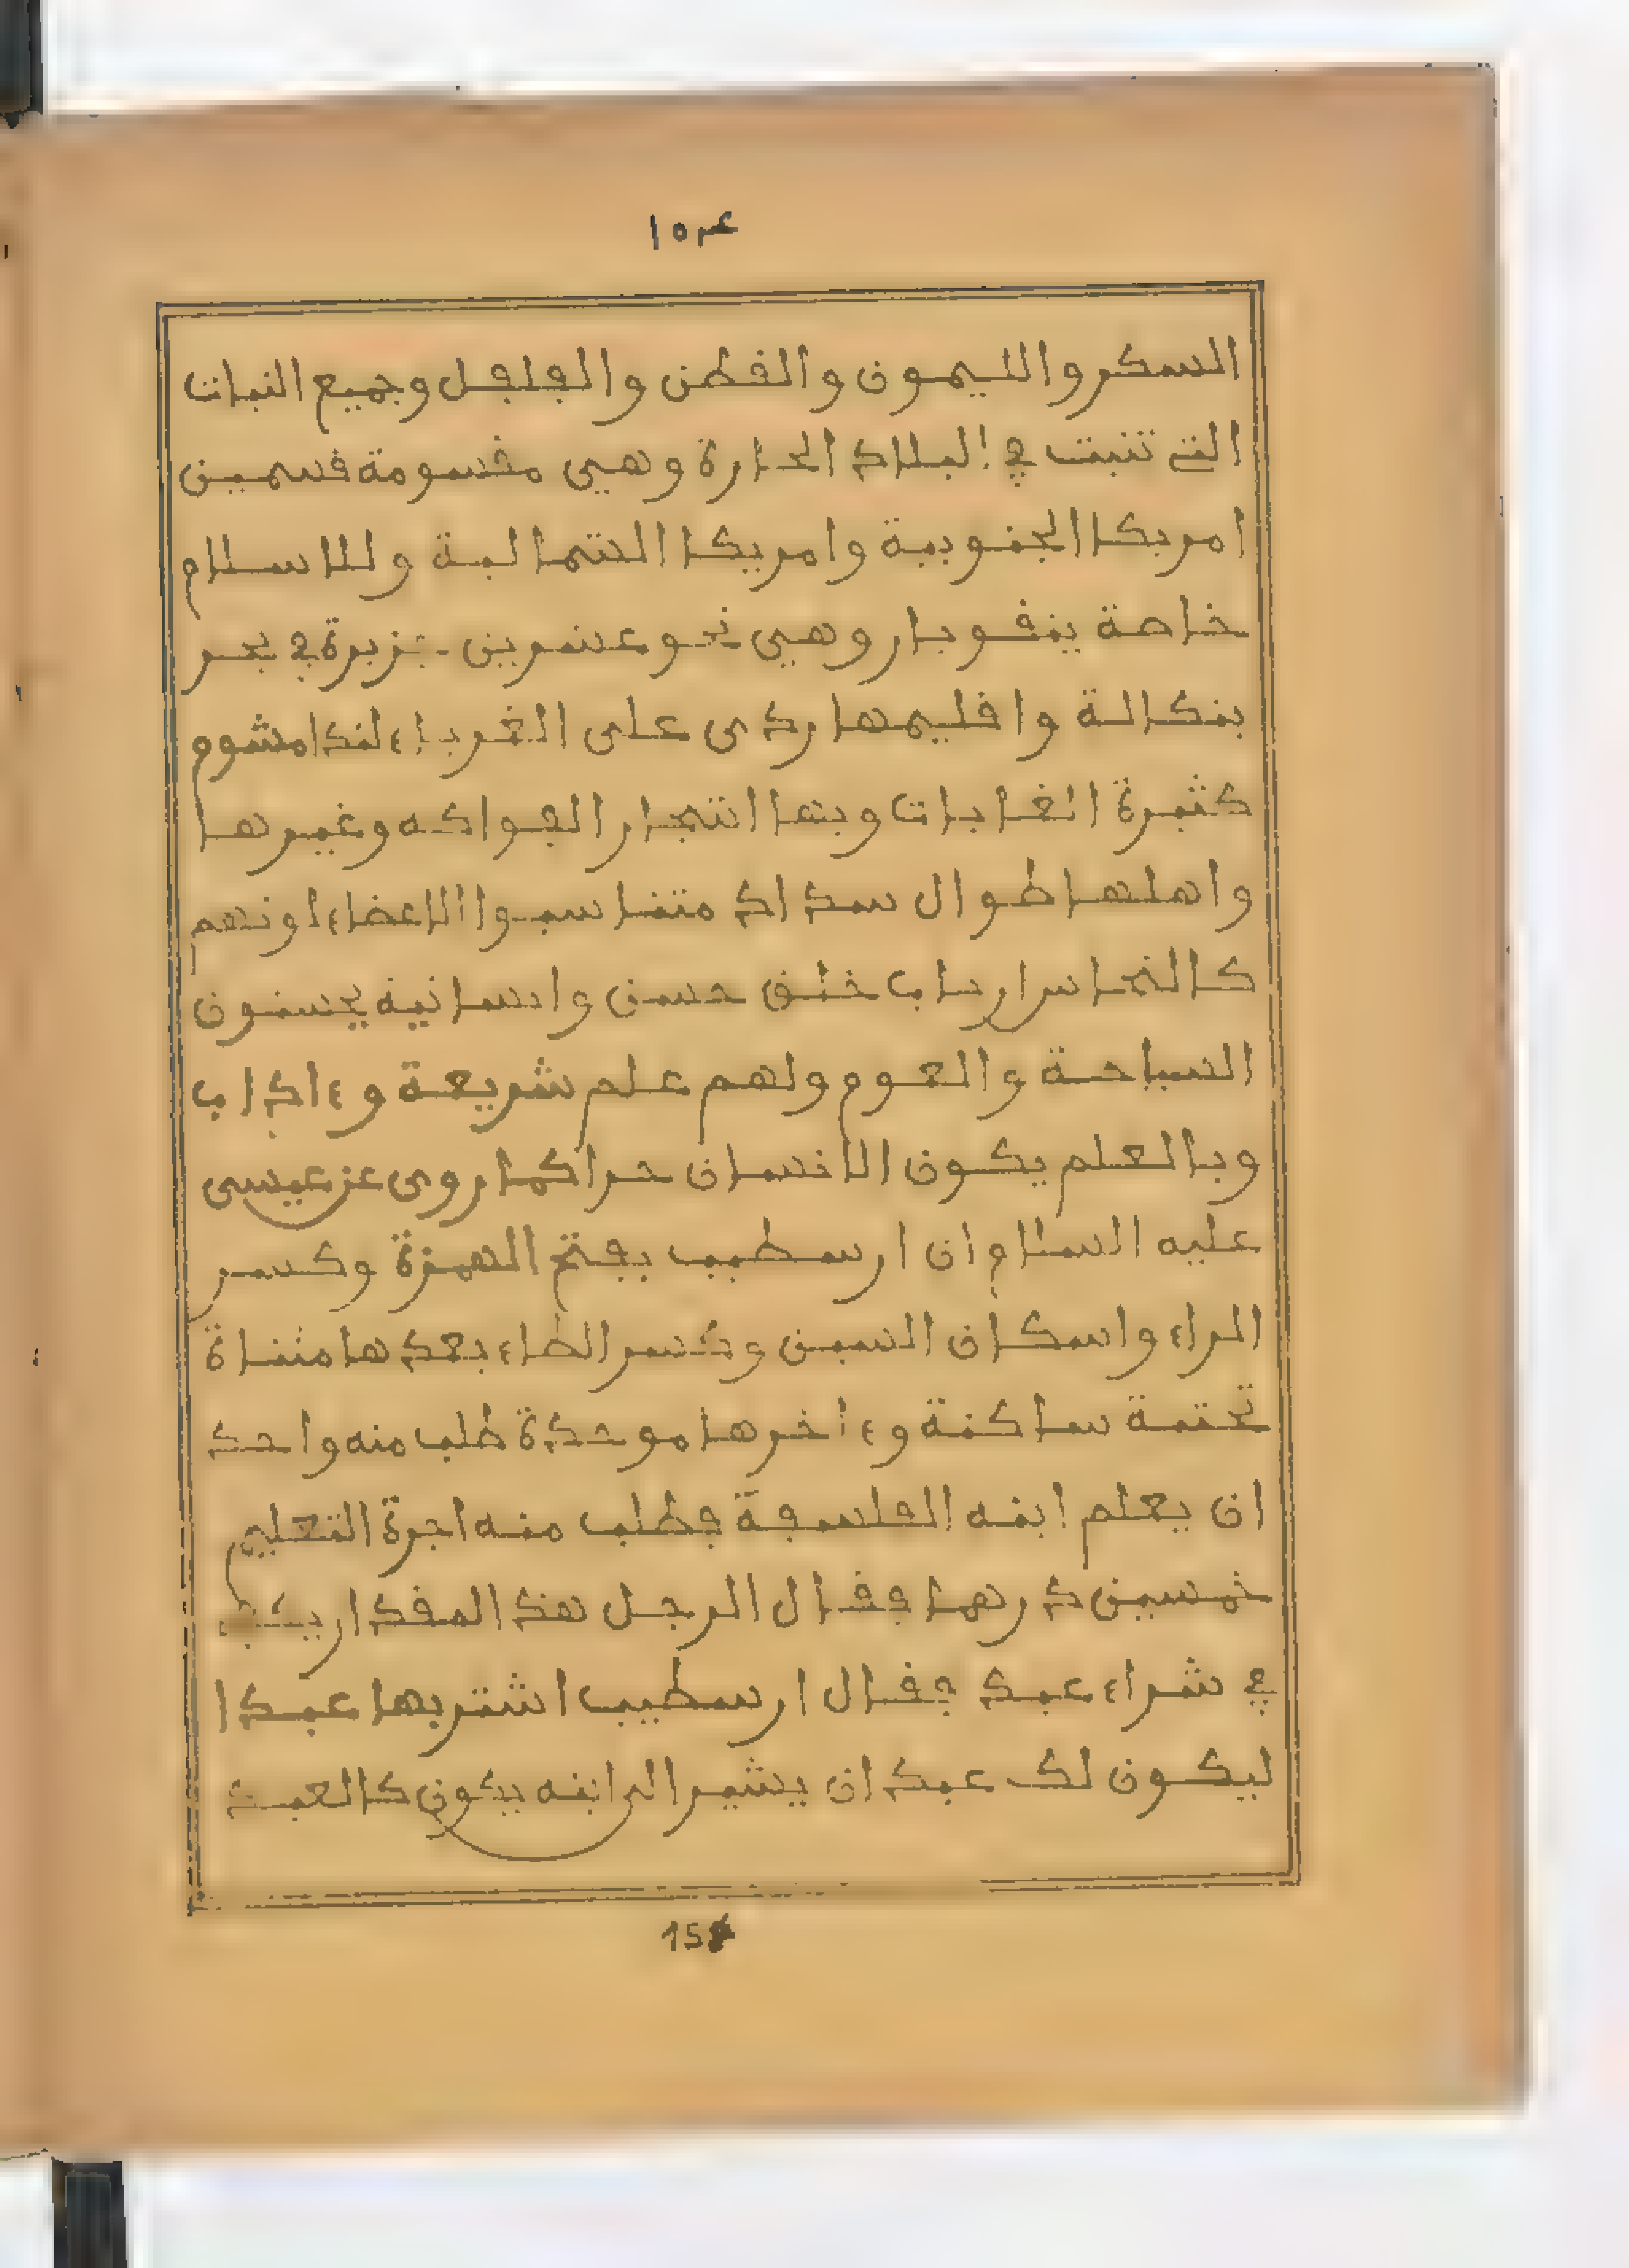 ١٥٤
السكر والليمون والقطن والفلفل وجميع النبات
التي تنبت في البلاد الحارة وهي مقسومة قسمين
امريكا الجنوبية وامريكا الشمالية وللاسلام
خاصة ينقوبار وهي نحو عشرين جزيرة في بحر
بنكالة واقليمها ردى على الغرباء لندا مشوم
كثيرة الغابات وبها اشجار الفواكه وغيرها
واهلها طوال سداد متناسبوا الاعضاء لونهم
كالنحاس ارباب خلق حسن وانسانية يحسنون
السباحة والعوم ولهم علم شريعة وءاداب
وبالعلم يكون الانسان حرا كما روى عن عيسى
عليه السلام ان ارسطيب بفتح الهمزة وكسر
الراء واسكان السين وكسر الطاء بعدها مثناة
تحتية ساكنة وءاخرها موحدة طلب منه واحد
ان يعلم ابنه الفلسفة فطلب منه اجرة التعليم
خمسين درهما فقال الرجل هذا المقدار يكفي
في شراء عبد فقال ارسطيب اشتر بها عبدا
ليكون لك عبدان يشير الى ابنه يكون كالعبد